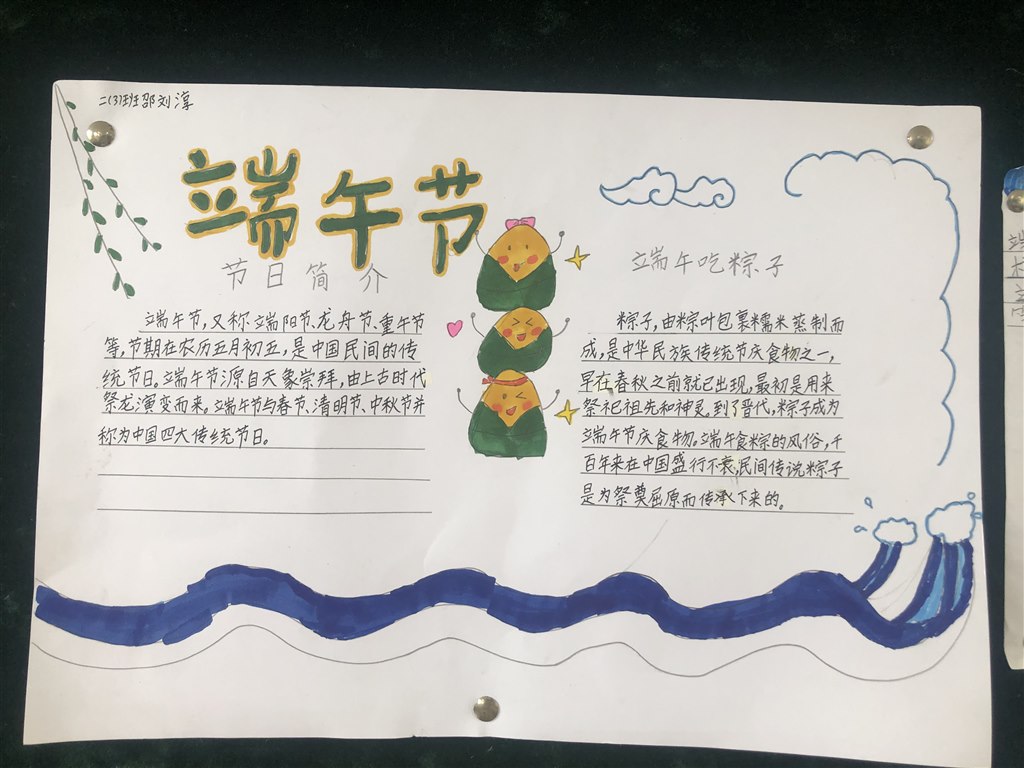 二(3)班邵刘淳
端午节
节日简介
端午节,又称端阳节、龙舟节、重午节
等,节期在农历五月初五,是中国民间的传
统节日。端午节源自天象崇拜,由上古时代
祭龙演变而来。端午节与春节、清明节、中秋节并
称为中国四大传统节日。
端午吃粽子
粽子,由粽叶包裹糯米蒸制而
成,是中华民族传统节庆食物之一,
早在春秋之前就已出现,最初是用来
祭祀祖先和神灵。到了晋代,粽子成为
端午节庆食物。端午食粽的风俗,千
百年来在中国盛行不衰,民间传说粽子
是为祭奠屈原而传承下来的。